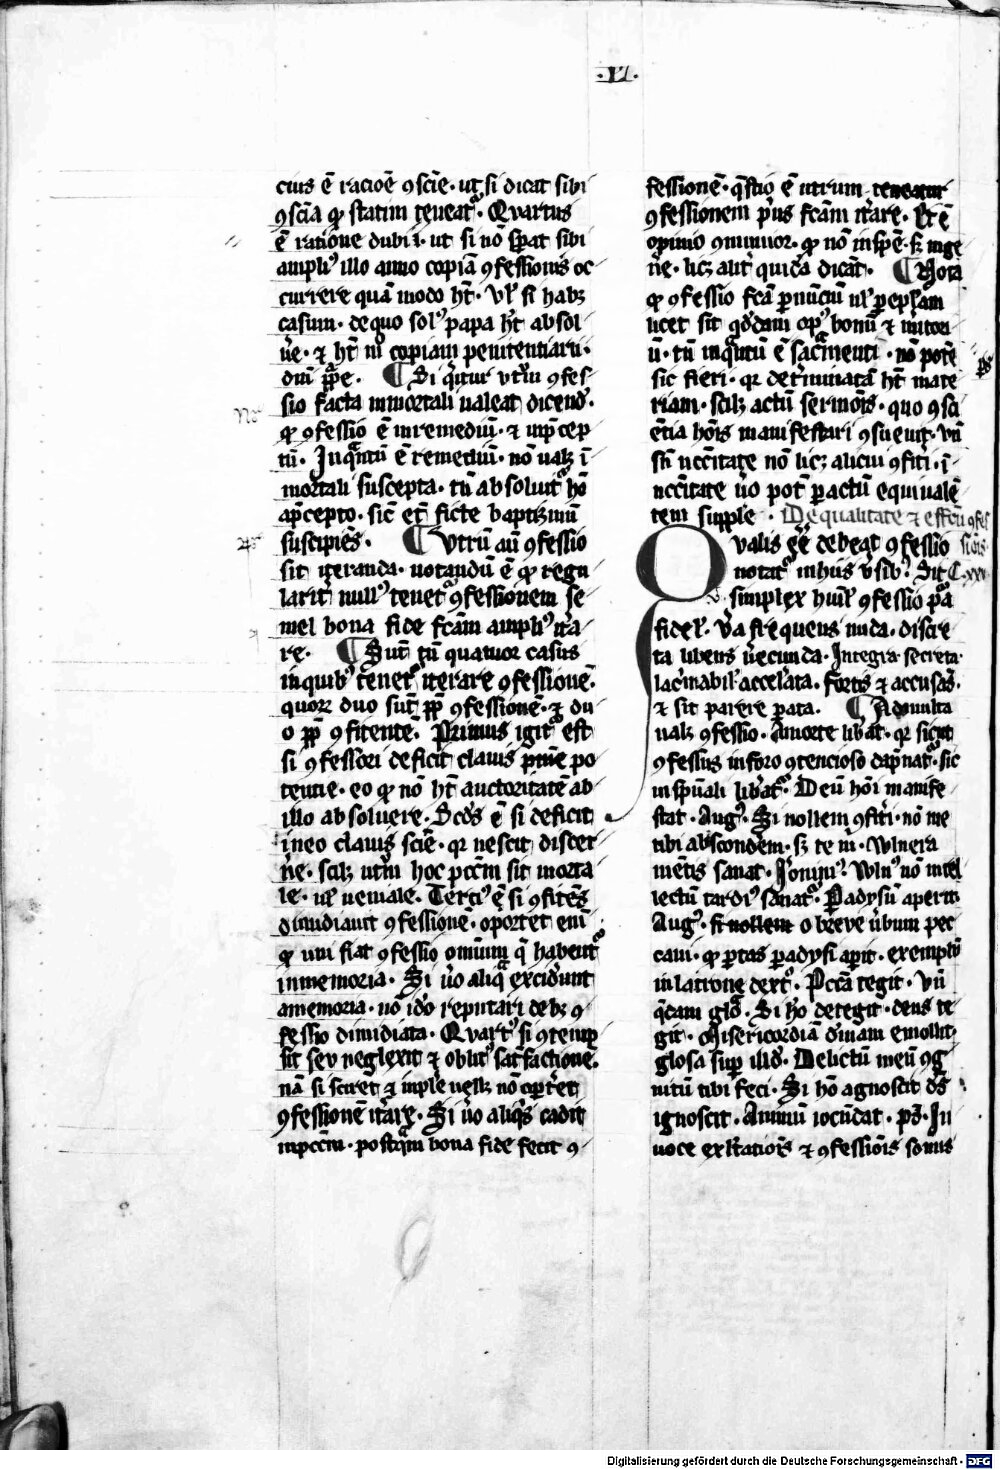 ·VI·
cius ē racioē ꝯscīe · ut si dicat sibi
ꝯscīa ꝙ statim teneat᷑ · Quartus
ē ratione dubii · ut si nō sperat sibi
ampliꝰ illo anno copiā ꝯfessionis oc
currere quā modo ht̄ · Vl̓ si habꝫ
casum · de quo solꝰ papa ht̄ absol
u̓e · ⁊ ht̄ copiam penitentiarii ·
dn̄i pp̄e · ¶ Si q̓ritur vtrū ꝯfes
sio facta in mortali ualeat dicendꝰ ·
ꝙ ꝯfessio ē in remediū · ⁊ in p̄cep
tū · In qᵃntū ē remediū · nō ualꝫ ī
mortali suscepta · tn̄ absoluit hō
a p̄cepto · sic̄ et̄ ficte baptizmū
suscipiēs · ¶ Vtrū aū ꝯfessio
sit iteranda · notandū ē ꝙ regu
larit̓ nullꝰ tenet᷑ ꝯfessionem se
mel bona fide fcām ampliꝰ ita
re · ¶ Sut̄ tn̄ quatuor casus
in quibꝰ tenet᷑ iterare ꝯfessionē ·
quoꝝ duo sūt ꝓpt̓ ꝯfessionē · ⁊ du
o ꝓpt̓ ꝯfitentē · Primus igit᷑ est
si ꝯfessori deficit clauis pnīe po
tentie · eo ꝙ nō ht̄ auctoritatē ab
illo absoluere · Scd̓s ē si deficit
in eo clauis scīe · qr nescit discer
n̓e · scilꝫ utrū hoc pcc̄m sit morta
le · ul̓ ueniale · Terciꝰ ē si ꝯfitēs
dimidiauit ꝯfessionē · oportet enī
ꝙ uni fiat ꝯfessio omnīum q̄ habent᷑
in memoria · Si u̓o aliqᵃ excid̓unt
a memoria · nō id̓o reputari debꝫ ꝯ
fessio dimidiata · Quartꝰ si ꝯtemp
sit seu neglexit ⁊ oblit᷑ satˢfactionē ·
nā si sciret ⁊ implē uellꝫ nō oport̓et
ꝯfessionē it̓are · Si u̓o aliqˢ cadit
in pcc̄m · postqᵃm bona fide fecit ꝯ
fessionē · q̄stio ē utrum teneatur
ꝯfessionem pˢus fcām it̓are · Et ē
opinio ꝯmunior · ꝙ nō in spē · sꝫ in ge
n̓e · licꝫ alit̓ quidā dicāt · ¶ Nota
ꝙ ꝯfessio fcā ꝑ nunciū ul̓ ꝑ epl̓am
licet sit q̓ddam opꝰ bonū ⁊ m̓itori
ū · tn̄ in qᵃntū ē sacᵃmenti · nō potē
sic fieri · qr det̓minatā ht̄ mate
riam · scilꝫ actū sermōis · quo ꝯsci
entia hōis manifestari ꝯsueuit · Vn̄
sn̄ nccītate nō licꝫ alicui ꝯfiti · ī
nccītate u̓o potꝰ ꝑ actū equiualē
tem supple · De qualitate ⁊ effcū ꝯfes
siōis
Qualis eē debeat ꝯfessio
notat᷑ in hiis v̓sibꝰ · Sit C. xxv
simplex huīl ꝯfessio pᵃ
fidel̓ · V̓a frequens nuda · discre
ta libens u̓ecunda · Integra secreta ·
lac̓mabil̓ accel̓ata · Fortis ⁊ accusās ·
⁊ sit parere ꝑata · ¶ Ad multa
ualꝫ ꝯfessio · A morte lib̓at · qr sicut
ꝯfessus in foro ꝯtencioso dāpnat᷑ · sic
in spūali lib̓at᷑ · Deū hōi manife
stat · Augꝰ · Si nollem ꝯfit̓i · nō me
tibi abscondēm · sꝫ te m̓ · Vulnera
mētis sanat · Ieronimꝰ · Vulnꝰ nō intel
lectū tardiꝰ sanat᷑ · Paradysū aperit
Augꝰ · si nollem o breue u̓bum pec
caui · ꝙ portas paradysi aꝑit · exemplū
in latrone dextꝰ · Pccā tegit · Vn̄
q̓dam glo · Si hō detegit · deus te
git · Misericordiā diuinam emollit
glosa suꝑ illud · Delictū meū ꝯg
nitū tibi feci · Si hō agnoscit dˢ
ignoscit · Animū iocūdat · pˢ · In
uoce exultatiōis ⁊ ꝯfessiōis sonus
Digitalisierung gefördert durch die Deutsche Forschungsgemeinschaft - DFG